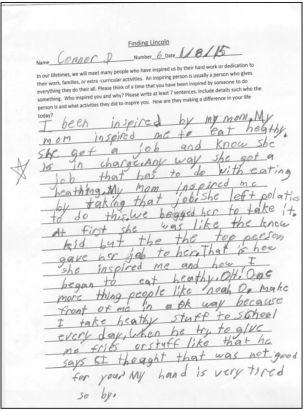 Finding Lincoln
Name Connor D Number 6 Date 1/8/15
In our lifetimes, we will meet many people who have inspired us by their hard work or dedication to
their work, families, or extra-curricular activities. An inspiring person is usually a person who gives
everything they do their all. Please think of a time that you have been inspired by someone to do
something. Who inspired you and why? Please write at least 7 sentences. Include details such who the
person is and what activities they did to inspire you. How are they making a difference in your life
today?
I been inspired by my mom. My
mom inspired me to eat heathy.
she got a job and know she
is in charge. Any way she got a
job that has to do with eating
heathing. My mom inspired me
by taking that job. She left
to do this. We begged her to take it.
At first she was like the knew
kid but the the top person
gave her job to her. That is how
she inspired me and how I
began to eat heathy. OH! One
more thing people like D. make
front of me in a ok way because
I take heathy stuff to school
every day. When he try to give
me frits or stuff like that he
says I thought that was not good
for you. My hand is very tired
so by.